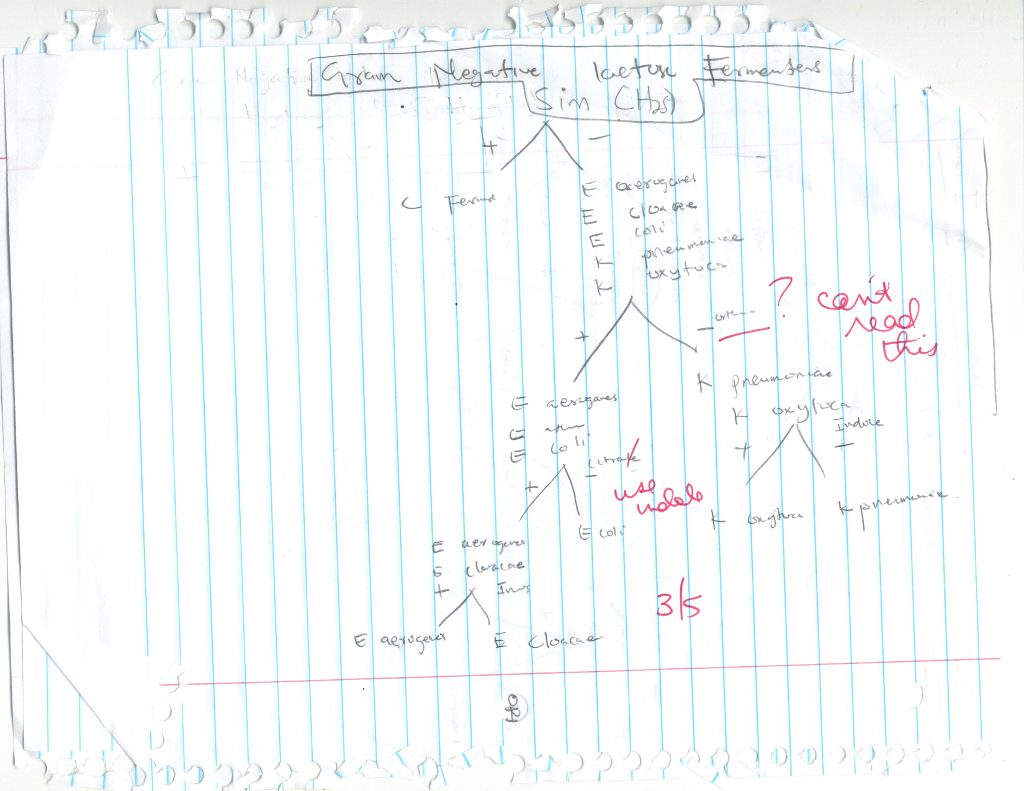 Gram Negative lactose Fermenters
Sim (H2S)
+ −
C Fernd
E aeroganes
E cloacae
E coli
K pneumoniae
K oxytoca
+ −
?
can't
read
this
E aeroganes
E
E coli
K pneumoniae
K oxytoca
Indole
+ −
citrate
+ −
use
indole
E coli
K oxytoca K pneumoniae
E aerogenes
E cloacae
+ Inos
3/5
E aerogenes E Cloacae